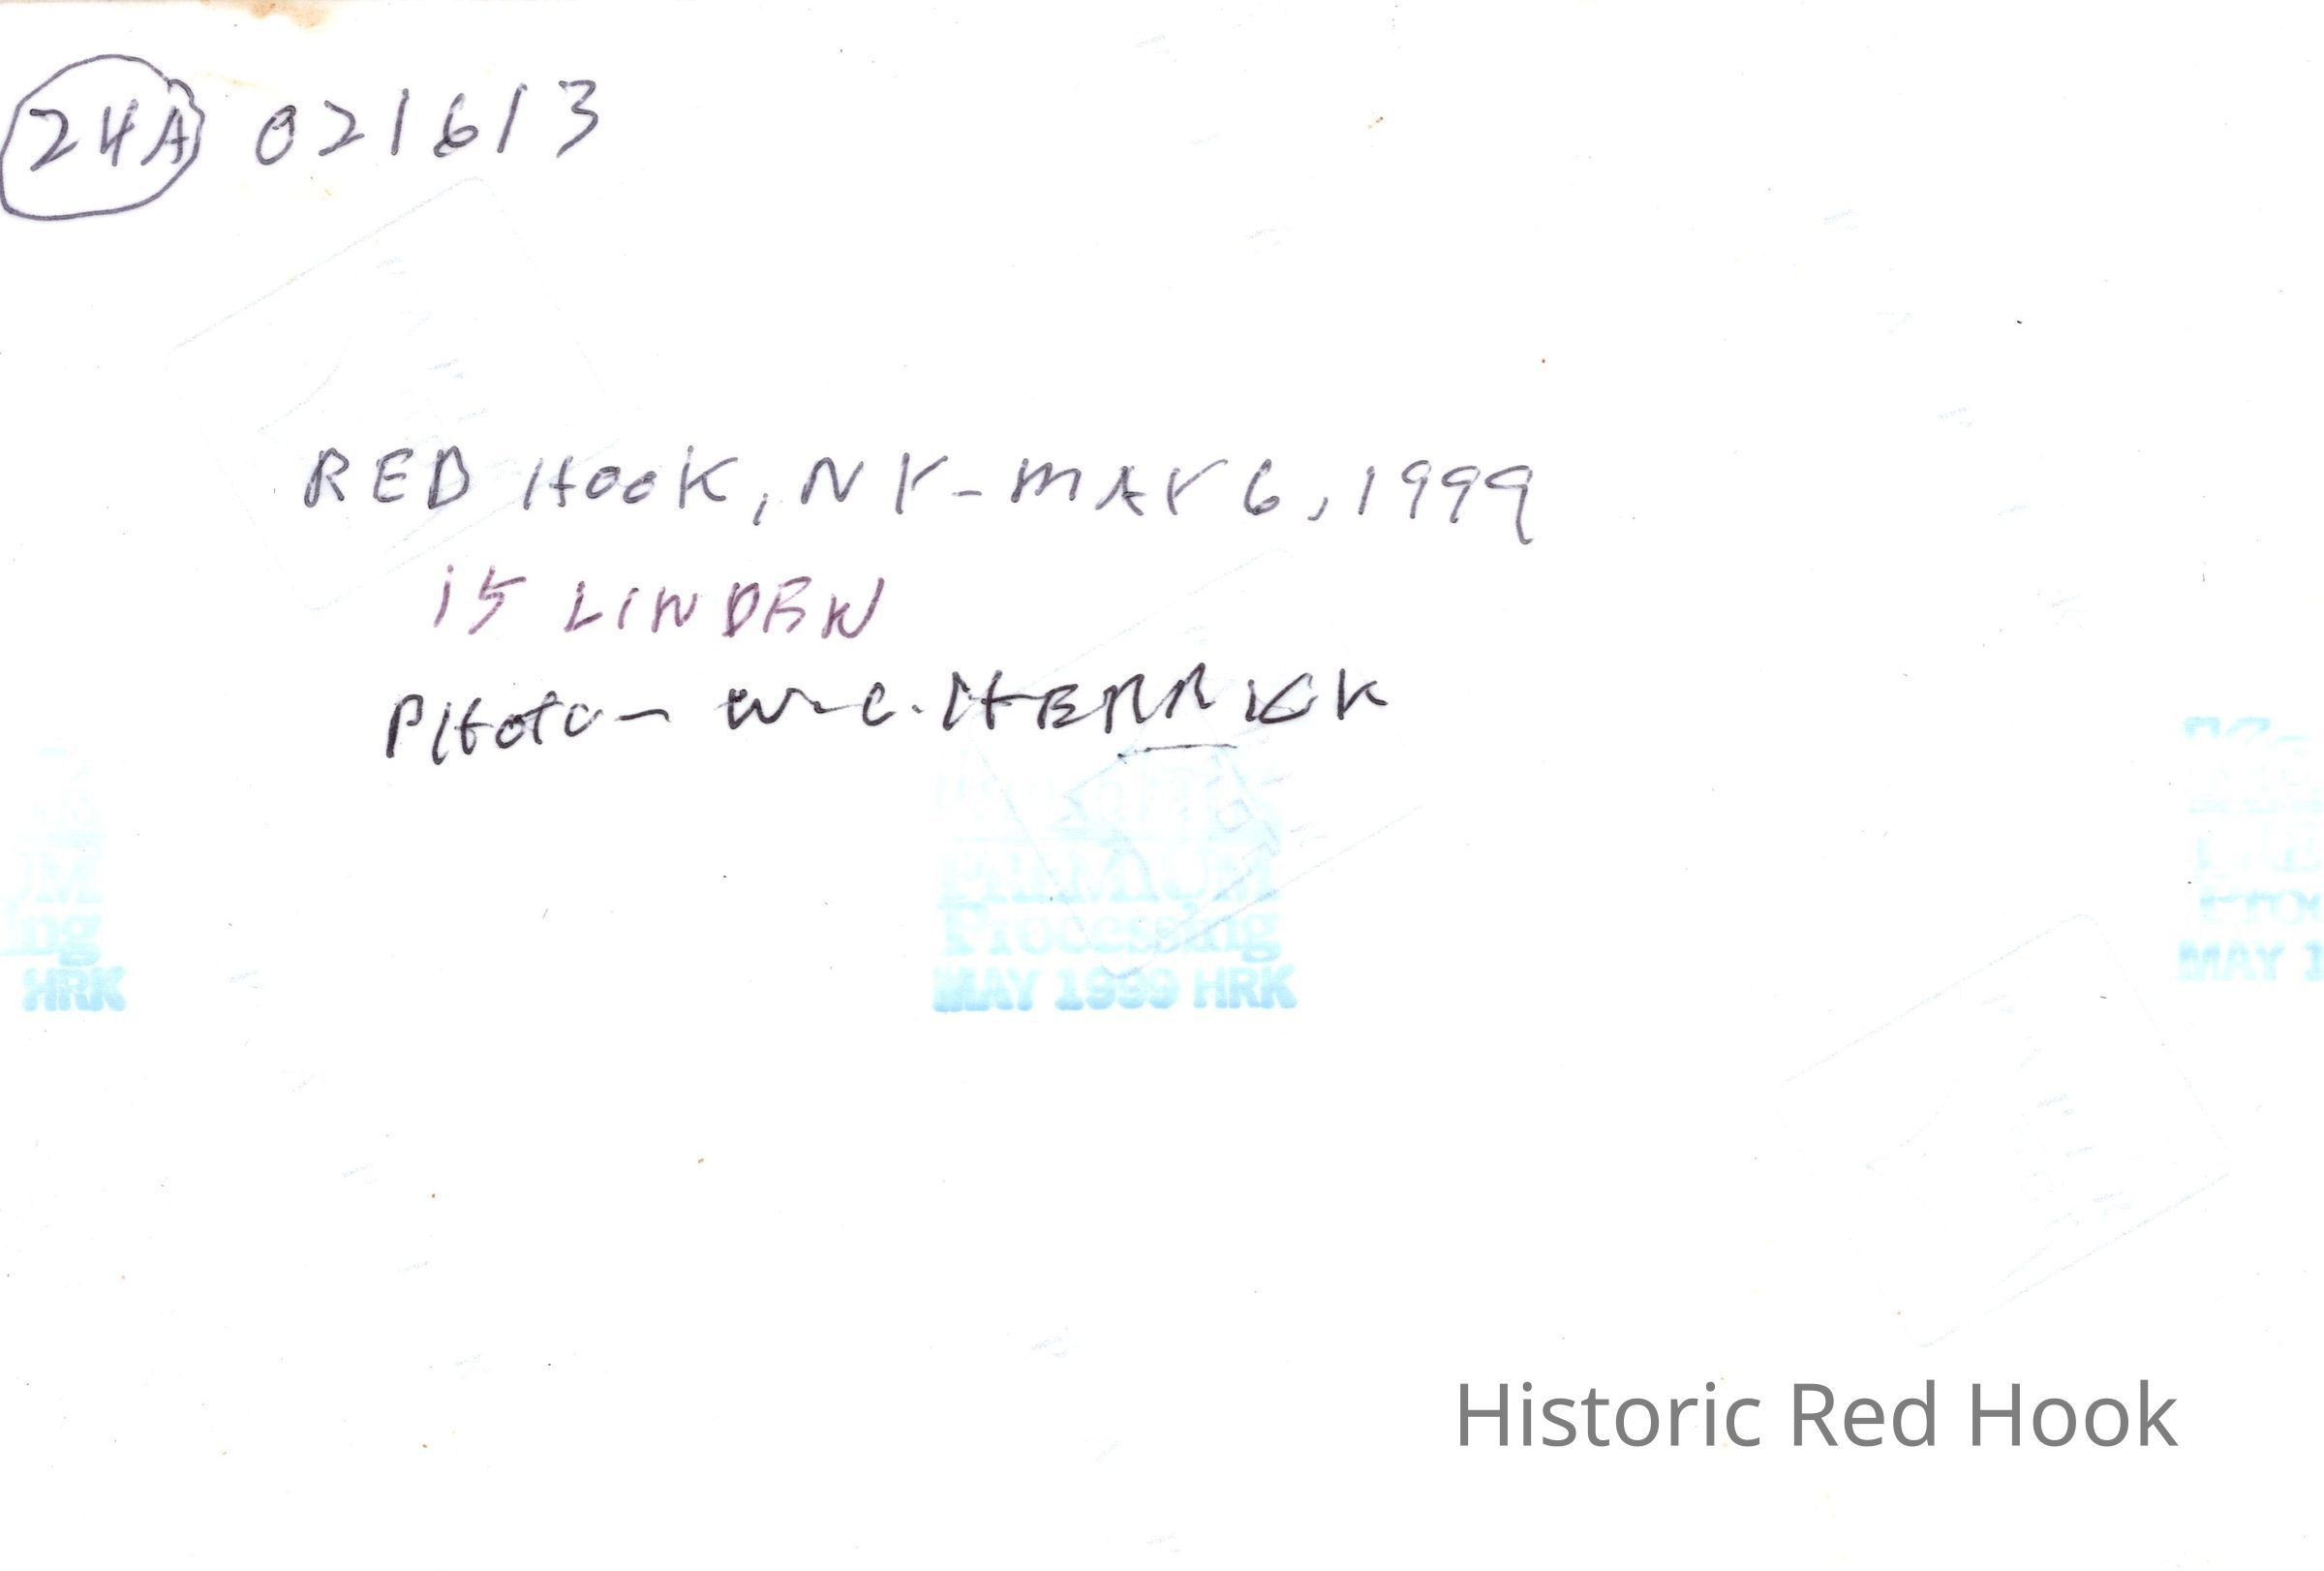 24A 021613
RED HOOK, NY - MAY 6, 1999
15 LINDEN
PHOTO - W-C. HERRICK
UM
PREMIUM
ing
Processing
Proc
HRK
MAY 1999 HRK
MAY 1
Historic Red Hook